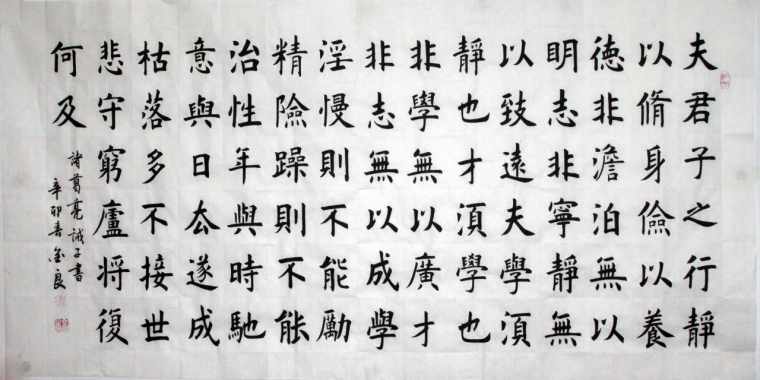 夫君子之行靜
以脩身儉以養
徳非澹泊無以
明志非寧靜無
以致遠夫學須
靜也才須學也
非學無以廣才
非志無以成學
淫慢則不能勵
精險躁則不能
治性年與時馳
意與日去遂成
枯落多不接世
悲守窮廬將復
何及
諸葛亮誡子書
辛卯春金良